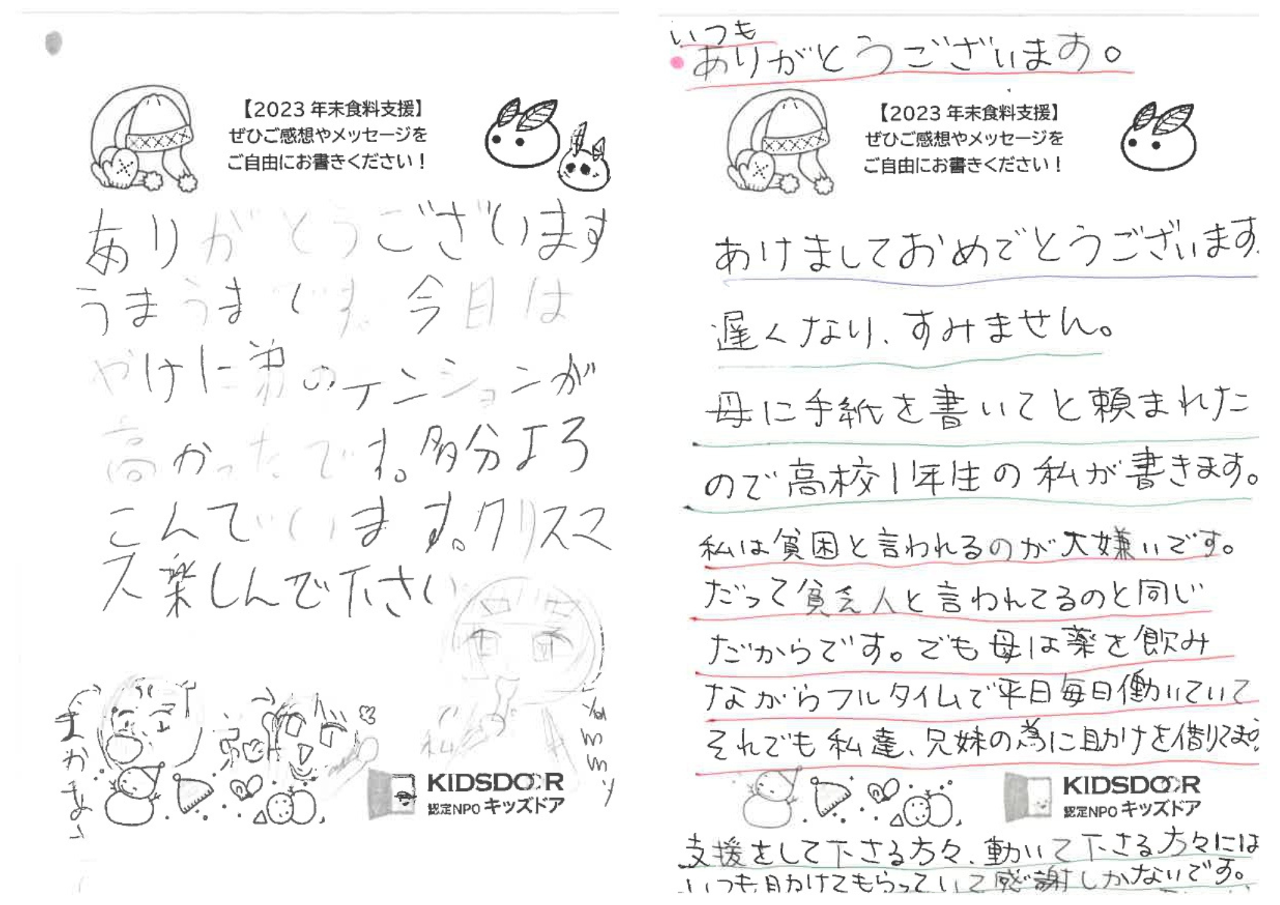 【2023 年末食料支援】
ぜひご感想やメッセージを
ご自由にお書きください！
ありがとうございます
うまうまです。今日は
やけに弟のテンションが
高かったです。多分よろ
こんでいます。クリスマ
ス楽しんで下さい
弟
私
Yummy
KIDSDOOR
認定NPO キッズドア
いつも
ありがとうございます。
【2023 年末食料支援】
ぜひご感想やメッセージを
ご自由にお書きください！
あけましておめでとうございます.
遅くなり、すみません。
母に手紙を書いてと頼まれた
ので高校1年生の私が書きます。
私は貧困と言われるのが大嫌いです。
だって貧乏人と言われてるのと同じ
だからです。でも母は薬を飲み
ながらフルタイムで平日毎日働いていて
それでも私達、兄妹の為に助けを借りてます
KIDSDOOR
認定NPO キッズドア
支援をして下さる方々、動いて下さる方々には
いつも助けてもらっていて感謝しかないです。